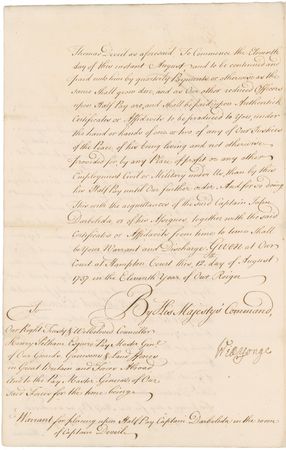 Thomas Devett as aforesaid. To Commence the Eleventh
day of this instant August, and to be continued and
paid unto him by quarterly Payments or otherwise as the
same shall grow due, and as Our other reduced Officers
upon Half Pay are, and shall be paid upon Authentick
Certificates or Affidavits to be produced to you, under
the hand or hands of one or two of any of Our Justices
of the Peace, of his being living and not otherwise
Provided for, by any Place of profit or any other
Employment Civil or Military under Us, than by this
his Half Pay until Our further order. And for so doing
this with the acquittances of the said Captain John
or of his Assignes, together with the said
Certificates or Affidavits from time to time shall
be your Warrant and Discharge. Given at Our
Court at Hampton Court this 12th day of August
1737 in the Eleventh Year of Our Reign.
By His Majesty's Command,
To
Our Right Trusty & Welbeloved Councillor
Henry Pelham Esquire Pay Master Genl.
of Our Guards Garrisons & Land Forces
in Great Britain and Forces Abroad
And to the Pay Master General of Our
said Forces for the time being.
Wm Yonge
Warrant for placing upon Half Pay Captain in the room
of Captain Devett.